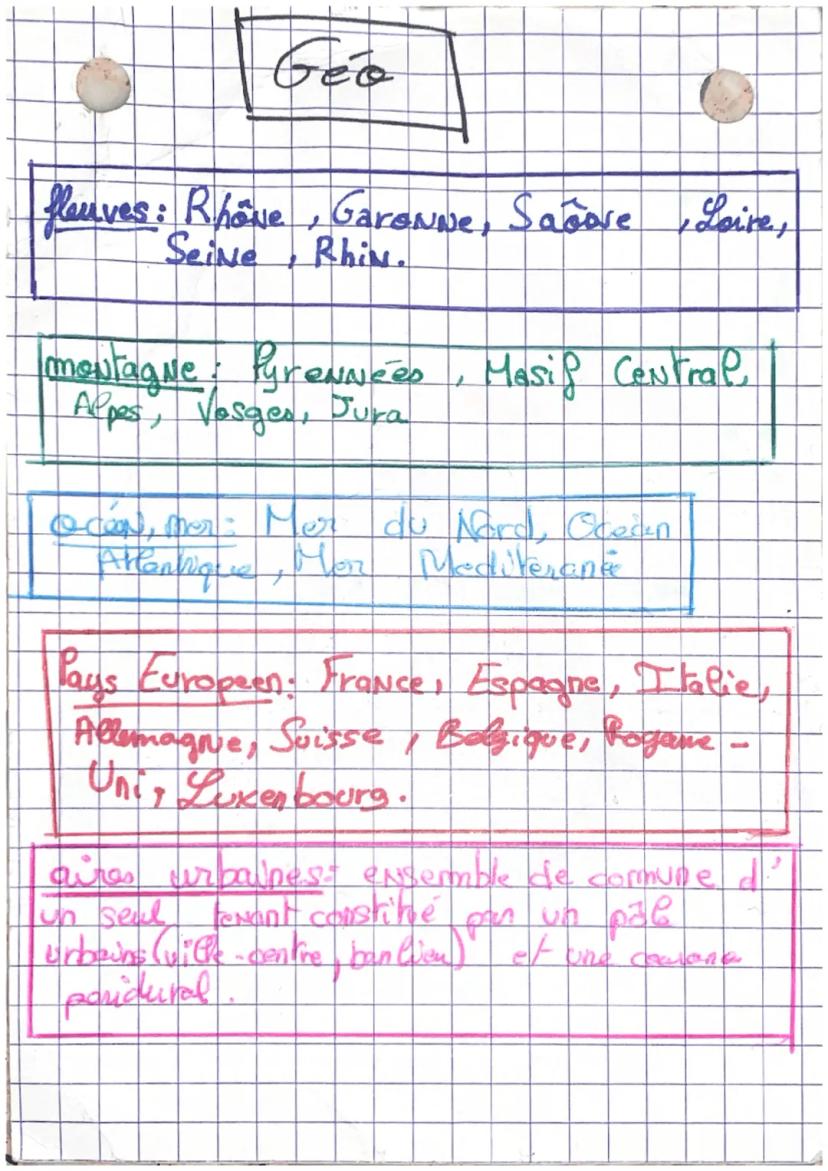 Géo
fleuves: Rhône, Garonne, Saône, Loire,
Seine, Rhin.
montagne: Pyrennées, Masif Central,
Alpes, Vosges, Jura
océan, mer: Mer du Nord, Océan
Atlantique, Mer Mediterané
Pays Europeen: France, Espagne, Italie,
Allemagne, Suisse, Belgique, Royaume-
Uni, Luxenbourg.
aires urbaines: ensemble de commune d'
un seul tenant constitué par un pôle
urbains (ville-centre, banlieu) et une